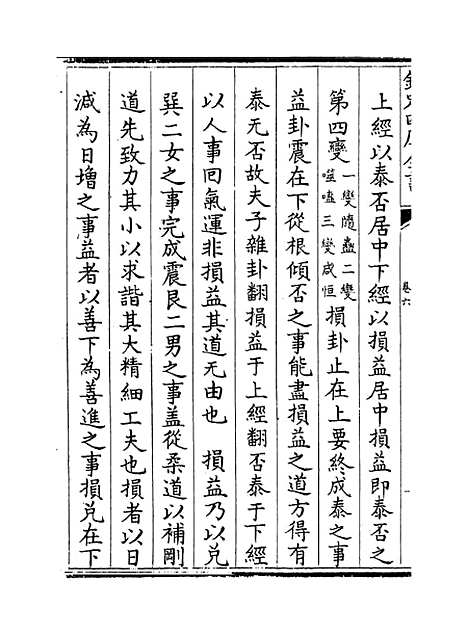 欽定四庫全書
卷六
上經以泰否居中下經以損益居中損益即泰否之
第四變一變隨蠱二變噬嗑三變咸恒損卦止在上要終成泰之事
益卦震在下從根傾否之事能盡損益之道方得有
泰无否故夫子雜卦翻損益于上經翻否泰于下經
以人事回氣運非損益其道无由也　損益乃以兑
巽二女之事完成震艮二男之事盖從柔道以補剛
道先致力其小以求諧其大精細工夫也損者以日
減為日增之事益者以善下為善進之事損兑在下